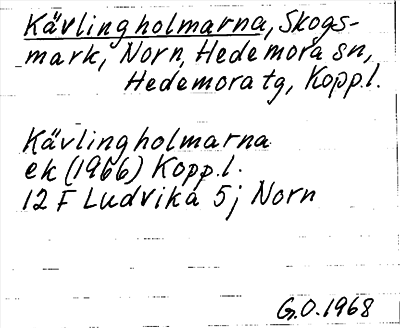 Kävlingholmarna, Skogs-
mark, Norn, Hedemora sn,
Hedemora tg, Kopp.l.
Kävlingholmarna
ek (1966) Kopp.l.
12 F Ludvika 5j Norn
G.O. 1968